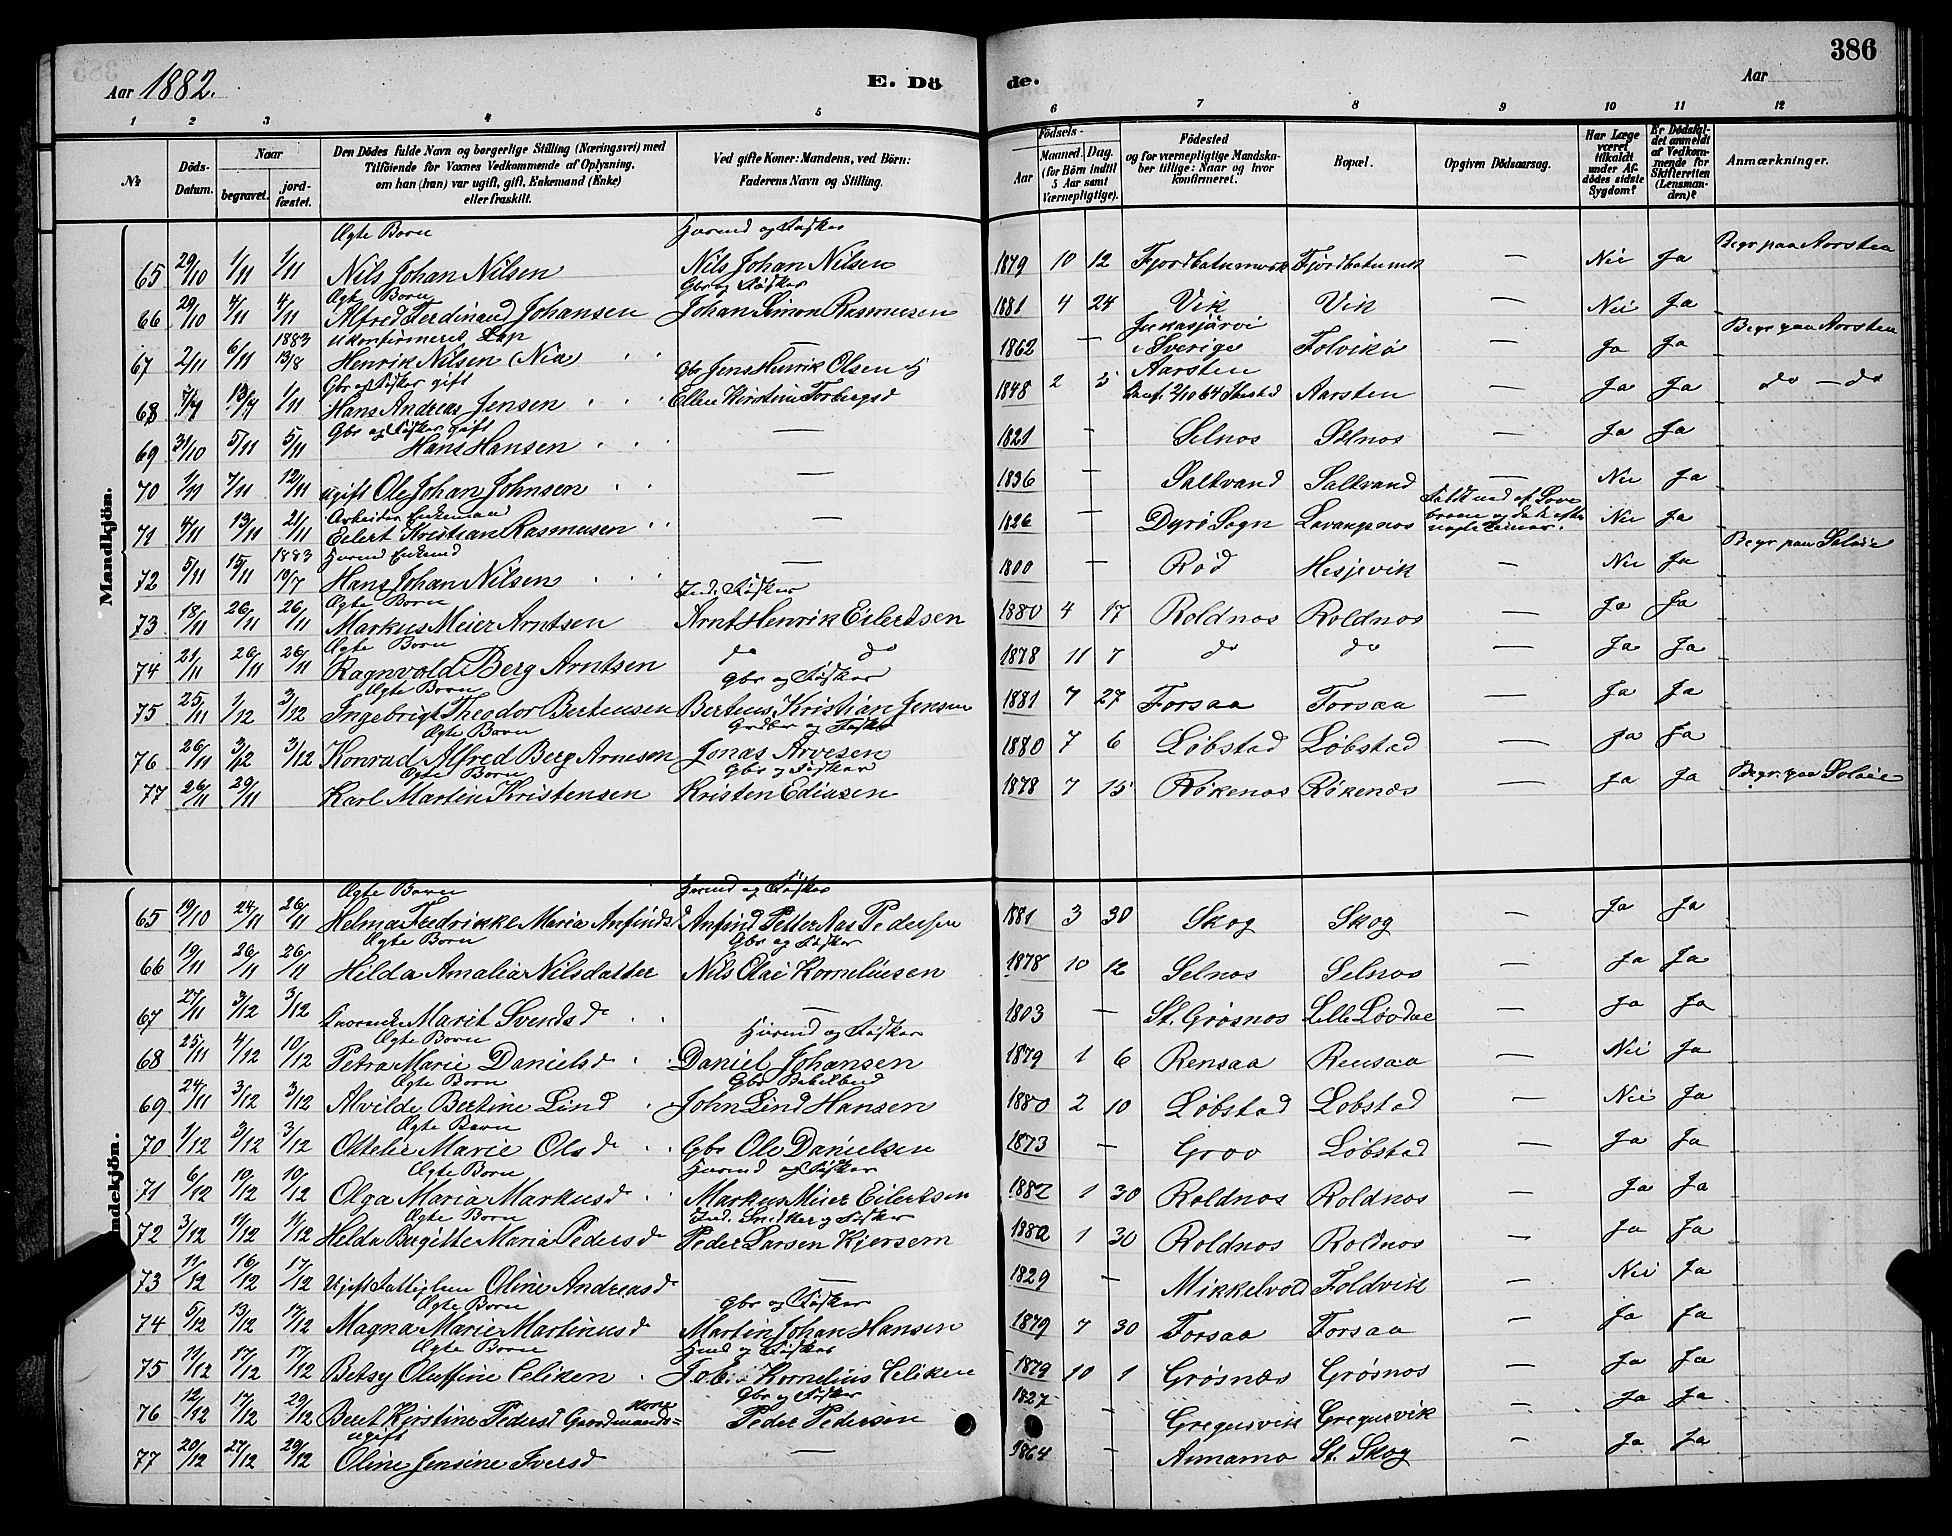 386
Aar 1882.
E. Dö
de.
Aar
1 2 3 4 5 6 7 8 9 10 11 12
№
Döds-Datum.
Naar
begravet.
jord-fæstet.
Den Dödes fulde Navn og borgerlige Stilling (Næringsvei) med
Tilföiende for Voxnes Vedkommende af Oplysning,
om han (hun) var ugift, gift, Enkemand (Enke)
eller fraskilt.
Ved gifte Koner: Mandens, ved Börn:
Faderens Navn og Stilling.
Födsels-
Aar
Maaned. Dag.
(for Börn indtil 5 Aar samt Værnepligtige).
Födested
og for værnepligtige Mandska-
ber tillige: Naar og hvor
konfirmeret.
Bopæl.
Opgiven Dödsaarsag.
Har Læge været tilkaldt under Af-dödes sidste Sygdom?
Er Dödsfal-det anmeldt af Vedkom-mende for Skifteretten (Lensman-den)?
Anmærkninger.
Mandkjön.
Ægte Barn Huusmd og Fisker
65 29/10 1/11 1/11 Nils Johan Nilsen Nils Johan Nilsen 1879 10 12 — Nei Ja Begr paa Aarsten
Ægte Barn Gbr og Fisker
66 29/10 4/11 4/11 Alfred Ferdinand Johansen Johan Simon Rasmussen 1881 4 24 Vik Vik — Nei Ja
1883 ukonfirmeret Lap Jukasjärvi
67 2/11 6/11 13/8 Henrik Nilsen (Nia) — 1862 — i Sverige Folvikø — Ja Ja Begr paa Aarsten
Gbr og Fisker gift Gbr Jens Henrik Olsen og Aarsten
68 13/9 1/11 Hans Andreas Jensen Ellen Kirstine Torbergsd 1848 2 5 Aarsten — Ja Ja do — do
Gbr og Fisker gift
69 31/10 5/11 5/11 Hans Hansen — 1821 — Selnos Selnos — Ja Ja
70 1/11 7/11 12/11 ugift Ole Johan Johnsen — 1836 — Saltvand Saltvand — Nei Ja
Arbeider Enkemand
71 4/11 13/11 21/11 Eilert Kristian Rasmussen — 1826 — Dyrø Sogn Lavangnos Nei Ja
1883 Huusmd Enkemd
72 5/11 15/11 19/7 Hans Johan Nilsen — 1800 — Rød Hesjevik — Nei Ja Begr paa Saløie
Ægte Barn Ind. Fisker
73 18/11 26/11 26/11 Markus Meier Arntsen Arnt Henrik Eilertsen 1880 4 17 Roldnos Roldnos — Ja Ja
Ægte Barn
74 21/11 26/11 26/11 Ragnvald Berg Arntsen do do 1878 11 7 do do — Ja Ja
Ægte Barn Gbr og Fisker
75 25/11 1/12 3/12 Ingebrigt Theodor Bertensen Bertens Kristian Jensen 1881 7 27 Forsaa Forsaa — Ja Ja
Ægte Barn Grdbr og Fisker
76 26/11 3/12 3/12 Konrad Alfred Berg Arnesen Jonas Arvesen 1880 7 6 Løbstad Løbstad — Ja Ja
Ægte Barn Gbr og Fisker
77 26/11 29/11 Karl Martin Kristensen Kristen Ediasen 1878 7 15 Røkenos Røkenæs — Ja Ja Begr. paa Saløie
ndekjön.
Ægte Barn Huusmd og Fisker
65 19/10 24/11 26/11 Helma Fredrikke Maria Anfindsd Anfind Petter Aas Pedersen 1881 3 30 Skog Skog — Ja Ja
Ægte Barn Gbr og Fisker
66 19/11 26/11 26/11 Hilda Amalia Nilsdatter Nils Olai Korneliusen 1878 10 12 Selnos Selnos — Ja Ja
67 27/11 3/12 3/12 Marit Svendsd — 1803 — St. Grøsnos — Ja Ja
Ægte Barn Huusmd og Fisker
68 25/11 4/12 10/12 Petra Marie Danielsd Daniel Johansen 1879 1 6 Rensaa Rensaa — Nei Ja
Ægte Barn
69 24/11 3/12 3/12 Alvilde Bertine Lind John Lind Hansen 1880 2 10 Løbstad Løbstad — Nei Ja
Ægte Barn
70 1/12 3/12 3/12 Ottelie Marie Olsd Gbr Ole Danielsen 1873 — Grov Løbstad — Ja Ja
Ægte Barn Huusmd og Fisker
71 6/12 10/12 10/12 Olga Maria Markusd Markus Meier Eilertsen 1882 1 30 Roldnos Roldnos — Ja Ja
Ægte Barn Ind. Snedker og Fisker
72 3/12 11/12 11/12 Helda Birgitte Maria Pedersd Peder Larsen Kjersem 1882 1 30 Roldnos Roldnos — Ja Ja
73 11/12 16/12 17/12 Ugift Fattiglem Oline Andreasd — 1829 — Mikkelvold Foldvik — Nei Ja
Ægte Barn Gbr og Fisker
74 5/12 13/12 17/12 Magna Marie Martinusd Martin Johan Hansen 1879 7 30 Forsaa Forsaa — Ja Ja
Ægte Barn Hmd og Fisker
75 11/12 17/12 17/12 Betsy Oluffine Celiken Kornelius Celiken 1879 10 1 Grøsnæs Grøsnos — Ja Ja
Kone Gbr og Fisker
76 12/12 17/12 29/12 Beret Kirstine Pedersd Gaardmands= Peder Pedersen 1827 — Gregusvik Gregusvik — Ja Ja
ugift
77 20/12 27/12 29/12 Oline Jensine Iversd — 1864 — Annamo St. Skog — Ja Ja